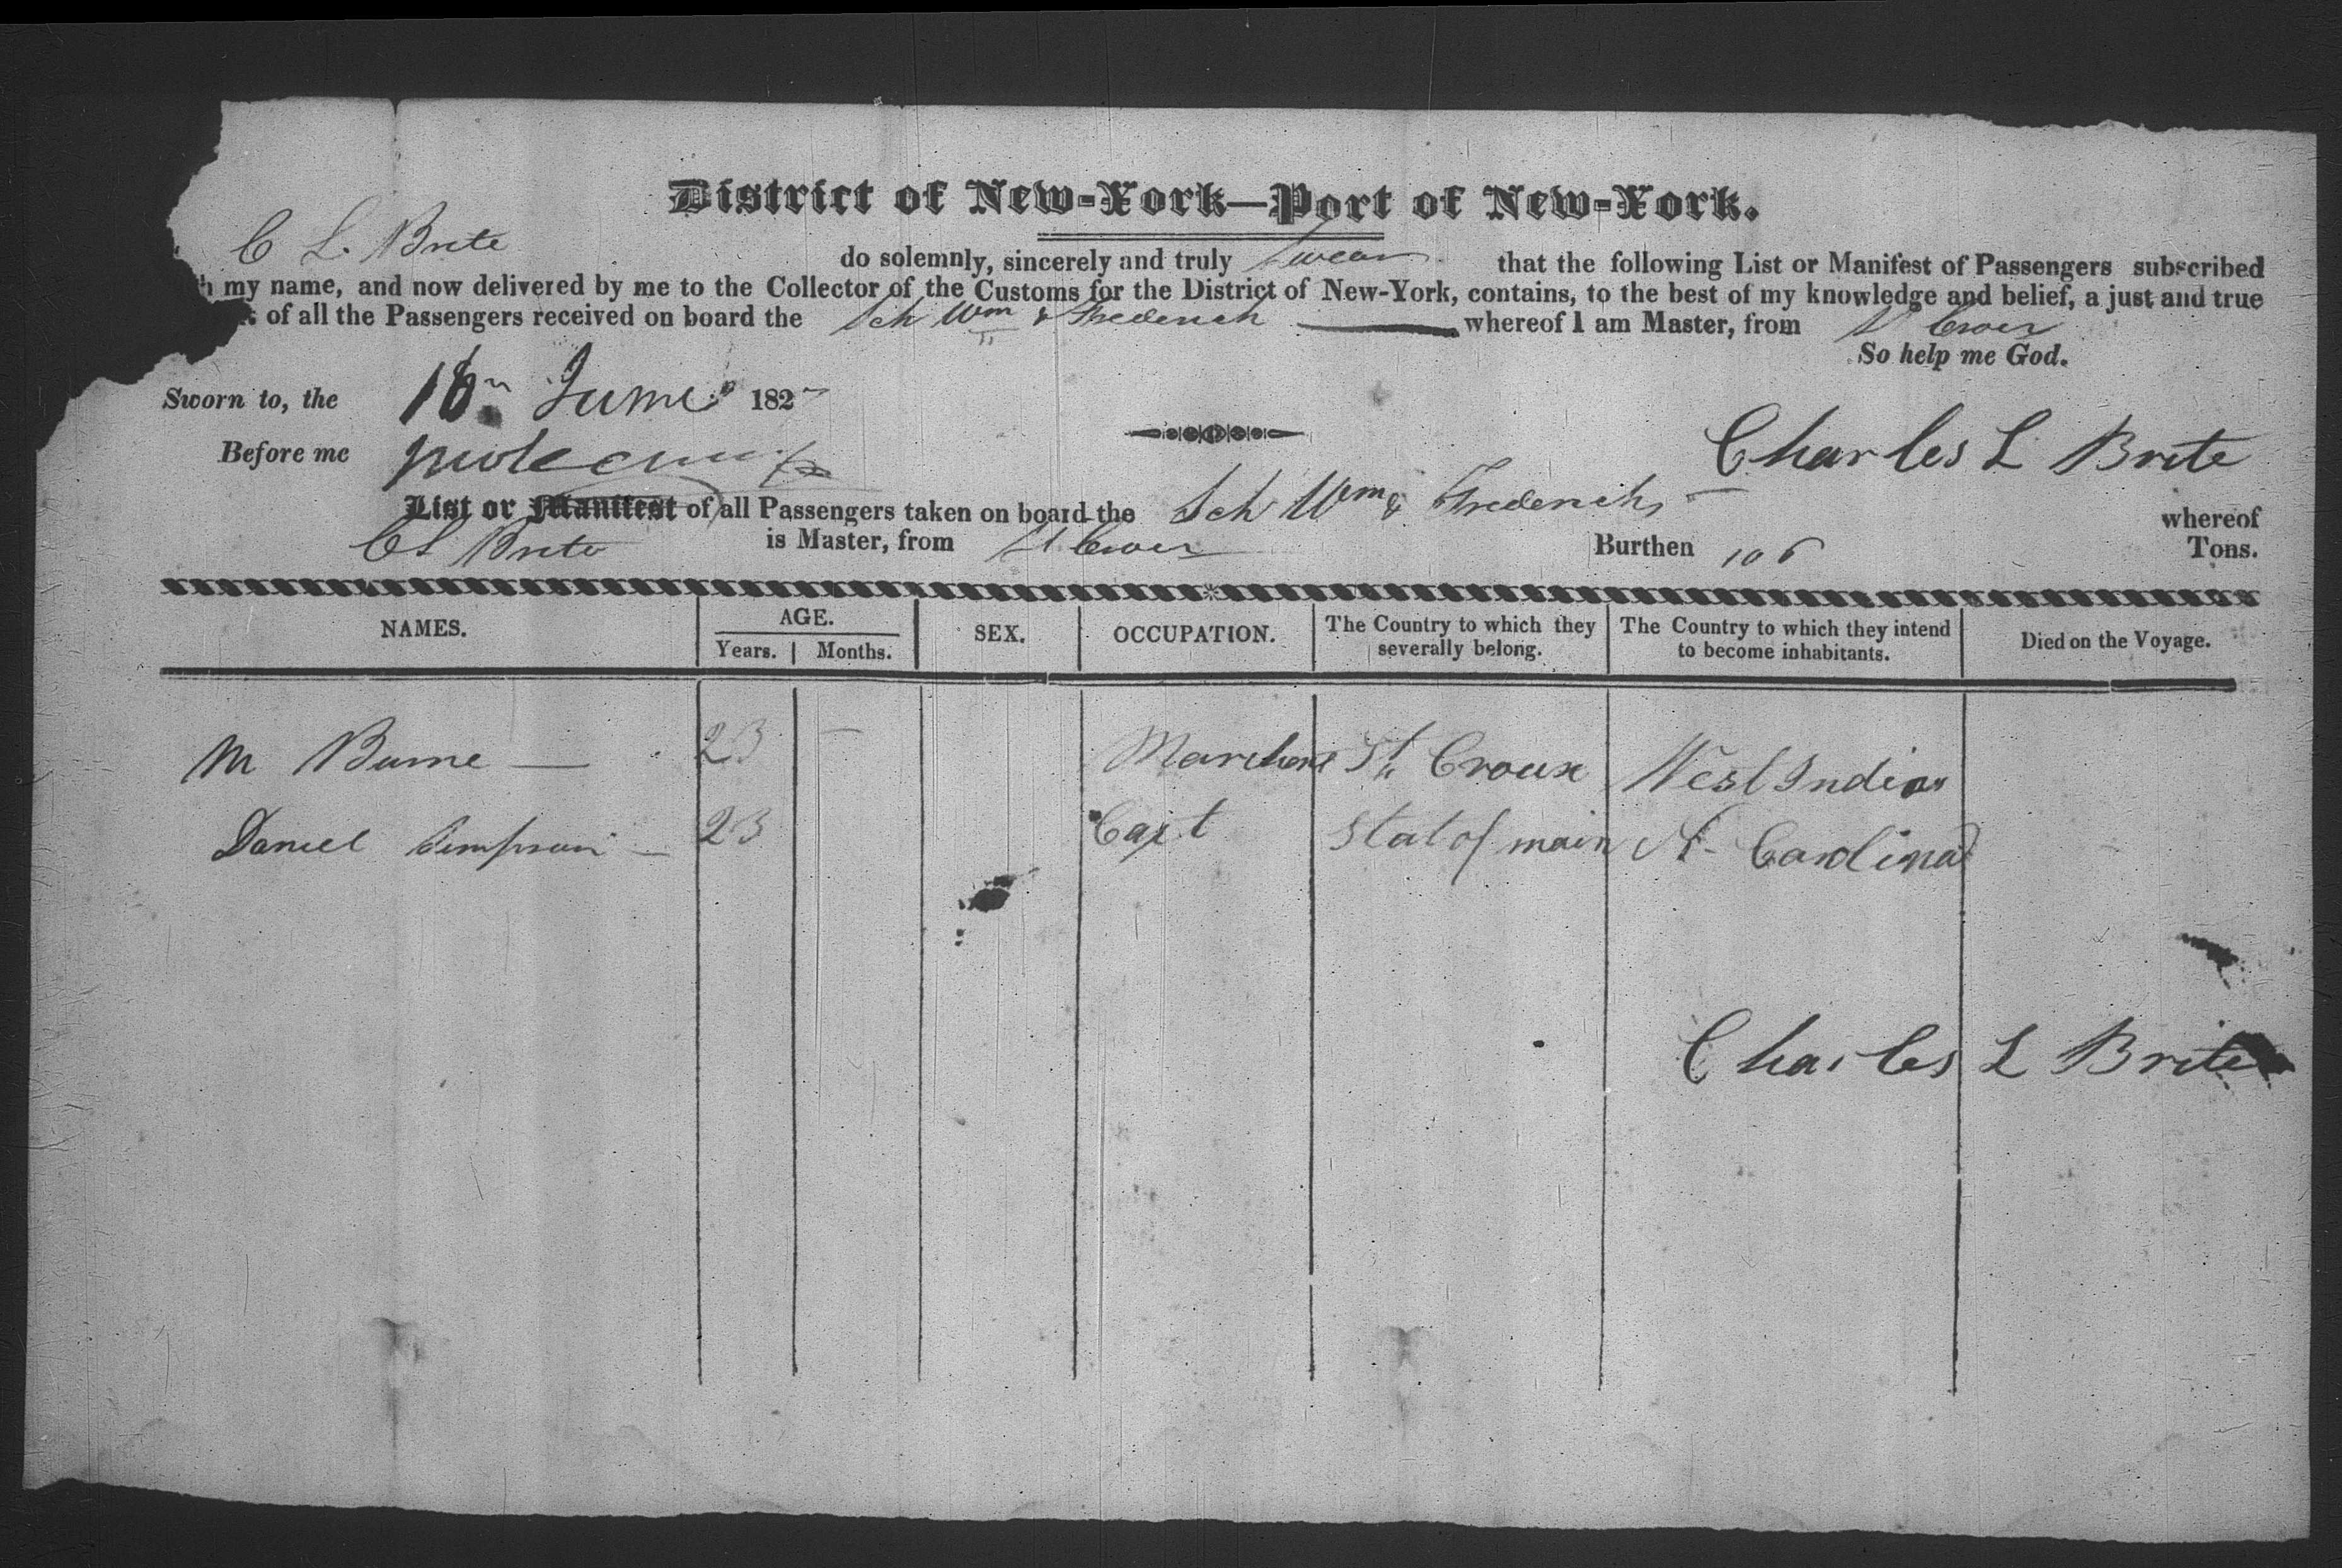 District of New-York—Port of New-York.
C L. Brite do solemnly, sincerely and truly swear that the following List or Manifest of Passengers subscribed
my name, and now delivered by me to the Collector of the Customs for the District of New-York, contains, to the best of my knowledge and belief, a just and true
of all the Passengers received on board the Sch Wm & Frederich whereof I am Master, from
So help me God.
Sworn to, the 16 June 182
Before me
Charles L Brite
List or Manifest of all Passengers taken on board the Sch Wm & Frederich whereof
C L Brite is Master, from Burthen 106 Tons.
NAMES. AGE. Years. Months. SEX. OCCUPATION. The Country to which they severally belong. The Country to which they intend to become inhabitants. Died on the Voyage.
M Burne — 23 — Marchant St Croux West Indias
Daniel Simpson — 23 Capt Stat of main N. Carolina
Charles L Brite